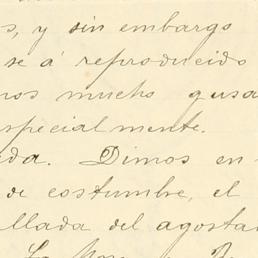 s, y sin embargo
se á reproducido
nos mucho gusa
especialmente.
da. Dimos en
de costumbre, el
llada del agosta